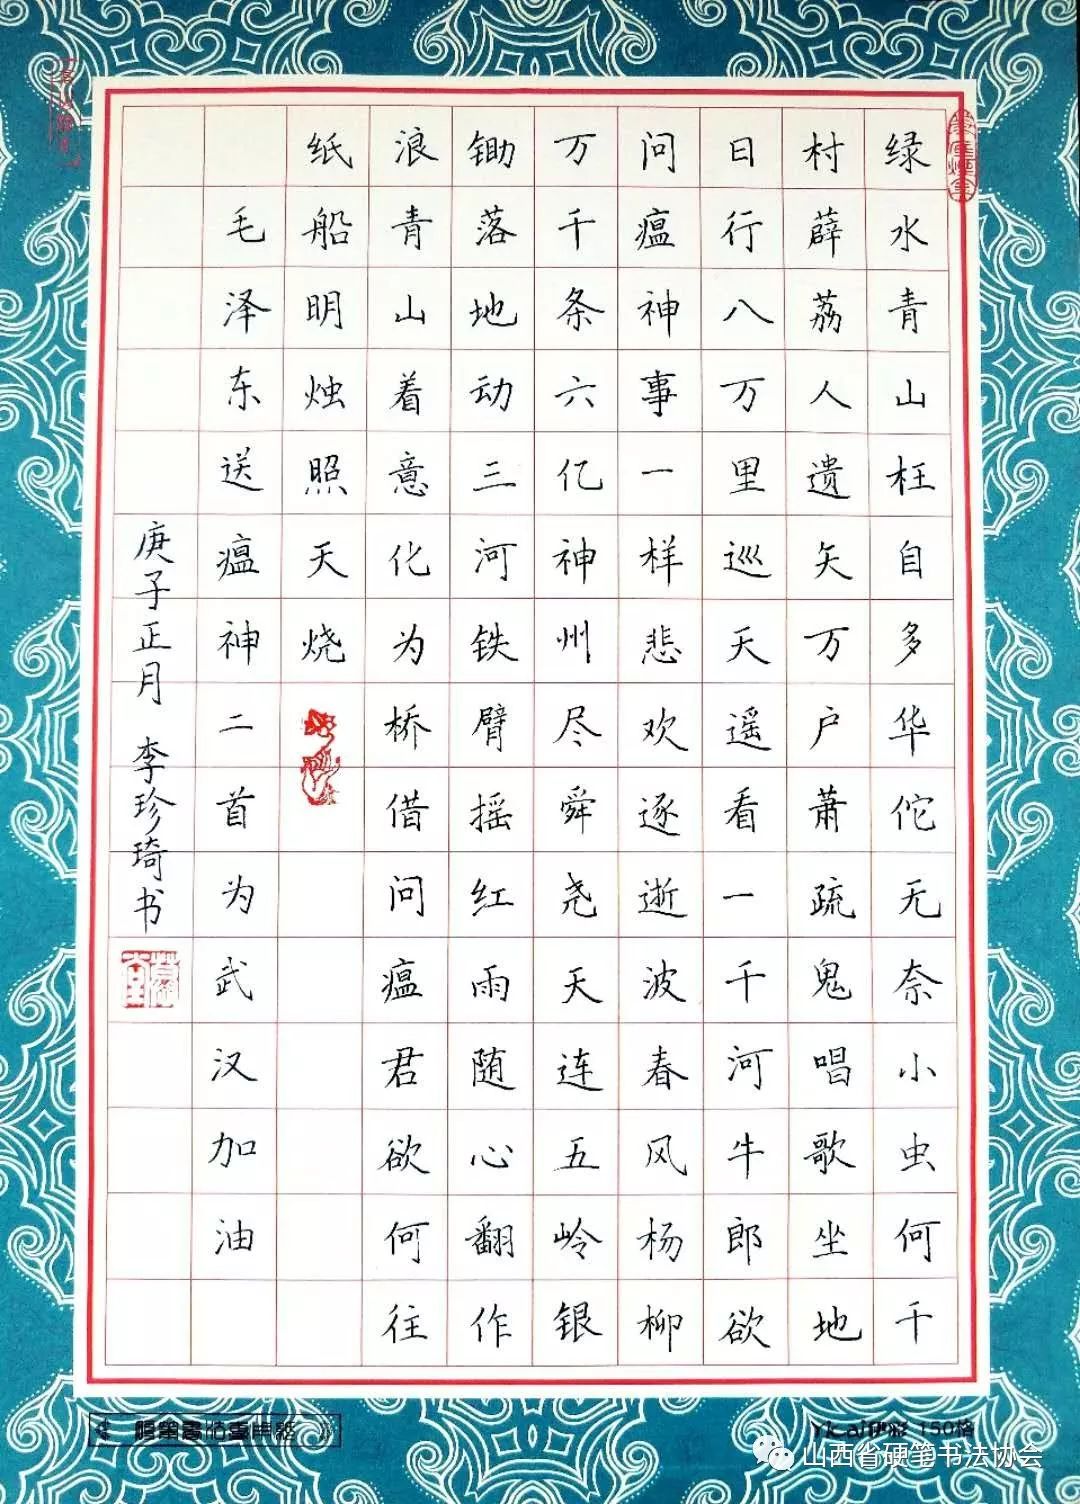 绿水青山枉自多华佗无奈小虫何千
村薜荔人遗矢万户萧疏鬼唱歌坐地
日行八万里巡天遥看一千河牛郎欲
问瘟神事一样悲欢逐逝波春风杨柳
万千条六亿神州尽舜尧天连五岭银
锄落地动三河铁臂摇红雨随心翻作
浪青山着意化为桥借问瘟君欲何往
纸船明烛照天烧
毛泽东送瘟神二首为武汉加油
庚子正月 李珍琦书
硬笔书法专用纸
Yicai伊彩 150格
山西省硬笔书法协会